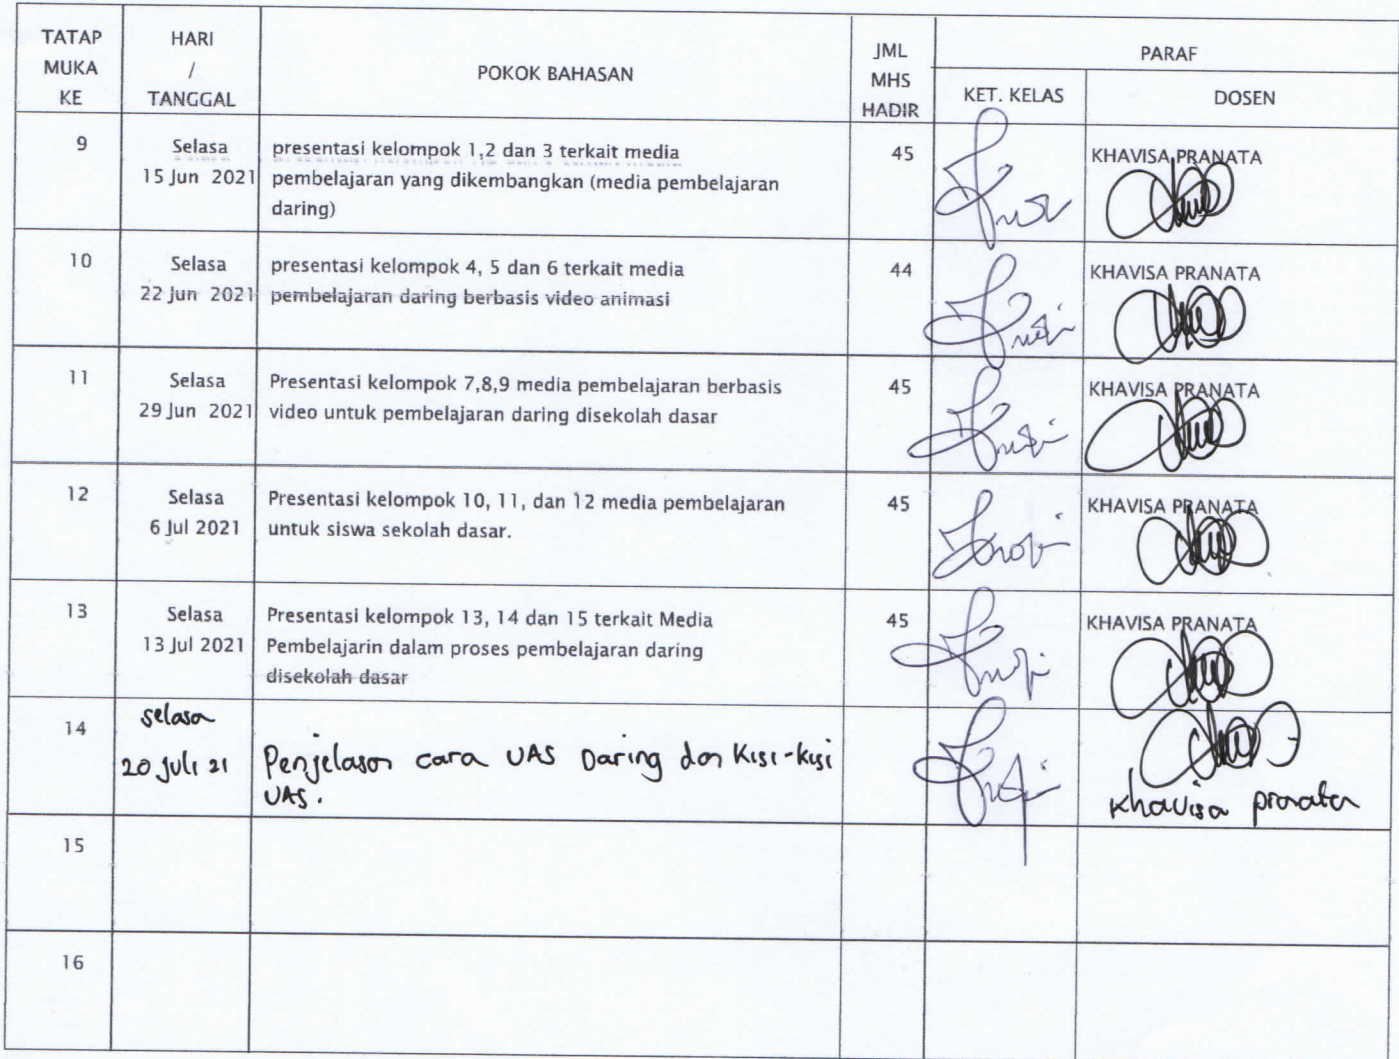 TATAP MUKA KE
HARI / TANGGAL
POKOK BAHASAN
JML MHS HADIR
PARAF
KET. KELAS
DOSEN
9
Selasa
15 Jun 2021
presentasi kelompok 1,2 dan 3 terkait media
pembelajaran yang dikembangkan (media pembelajaran
daring)
45
KHAVISA PRANATA
10
Selasa
22 Jun 2021
presentasi kelompok 4, 5 dan 6 terkait media
pembelajaran daring berbasis video animasi
44
KHAVISA PRANATA
11
Selasa
29 Jun 2021
Presentasi kelompok 7,8,9 media pembelajaran berbasis
video untuk pembelajaran daring disekolah dasar
45
KHAVISA PRANATA
12
Selasa
6 Jul 2021
Presentasi kelompok 10, 11, dan 12 media pembelajaran
untuk siswa sekolah dasar.
45
KHAVISA PRANATA
13
Selasa
13 Jul 2021
Presentasi kelompok 13, 14 dan 15 terkait Media
Pembelajarin dalam proses pembelajaran daring
disekolah dasar
45
KHAVISA PRANATA
14
selasa
20 Juli 21
Penjelasan cara UAS Daring dan Kisi-kisi
UAS.
Khavisa pranata
15
16